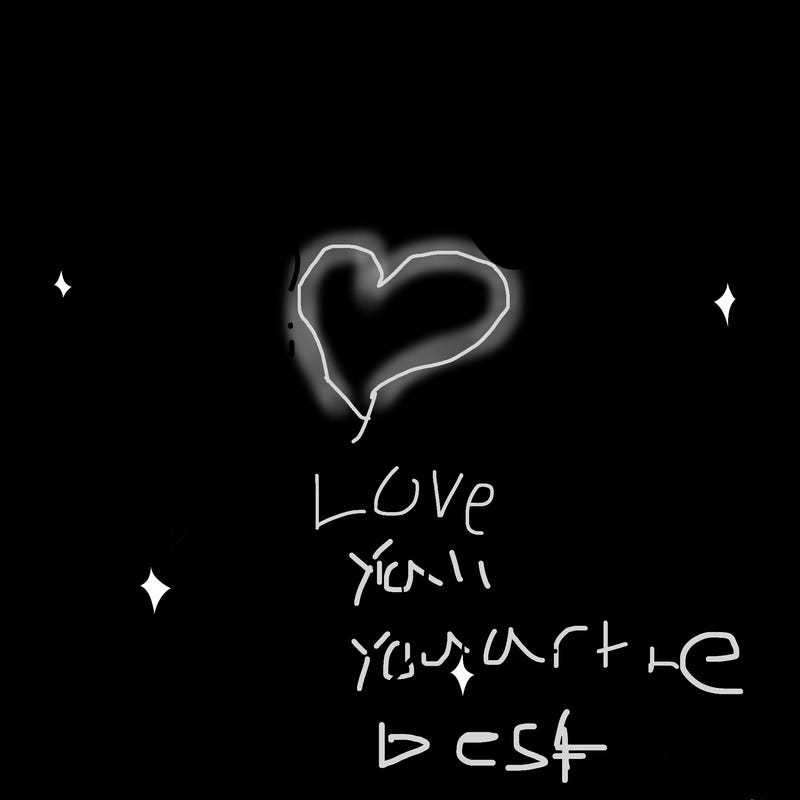 Love
yall
you ar the
best